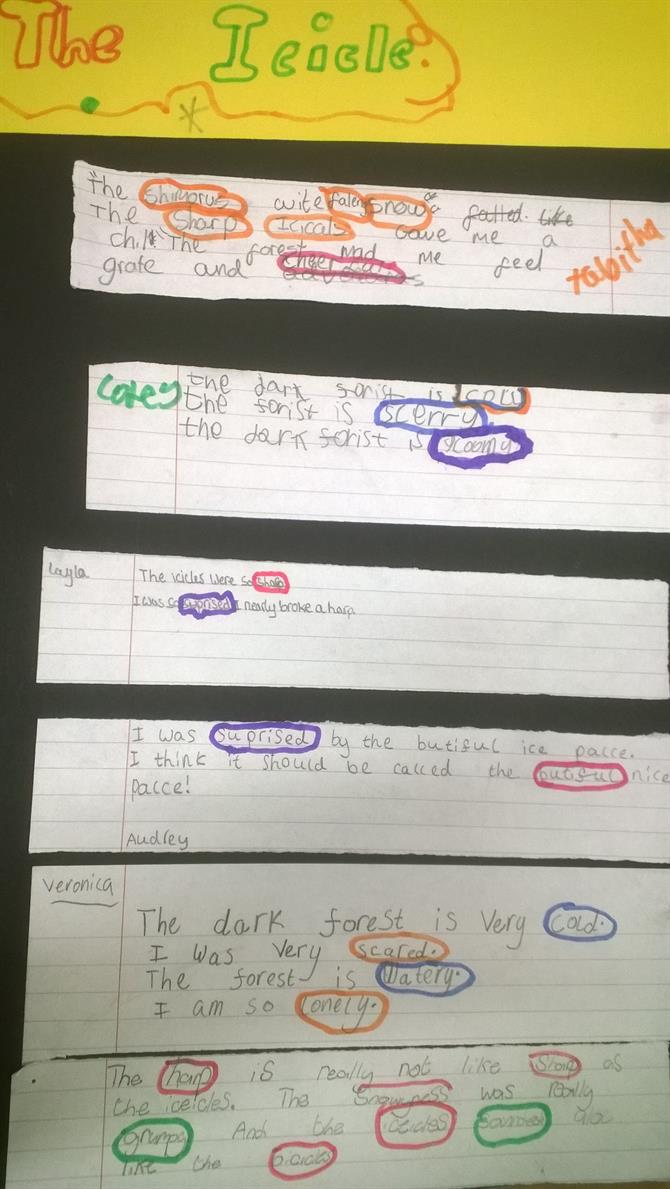 The Icicle.
The wite faleng snow
The Sharp Icicals Gave me a
chill The forest mad me feel
grate and cheer
tabitha
Corey
the dark forist is cold
the forist is scerry
the dark forist is gloomy
Layla
The icicles were so sharp
I was so suprised I nearly broke a harp
I was suprised by the butiful ice palcce.
I think it should be called the butiful nice
palcce!
Audrey
Veronica
The dark forest is very cold.
I was very scared.
The forest is watery.
I am so lonely.
The harp is really not like sharp as
the iceicles. The Snowyness was really
And the iceicles
like the